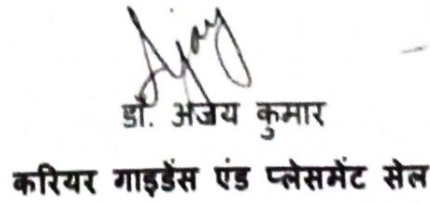 Ajay
डॉ. अजय कुमार
करियर गाइडेंस एंड प्लेसमेंट सेल